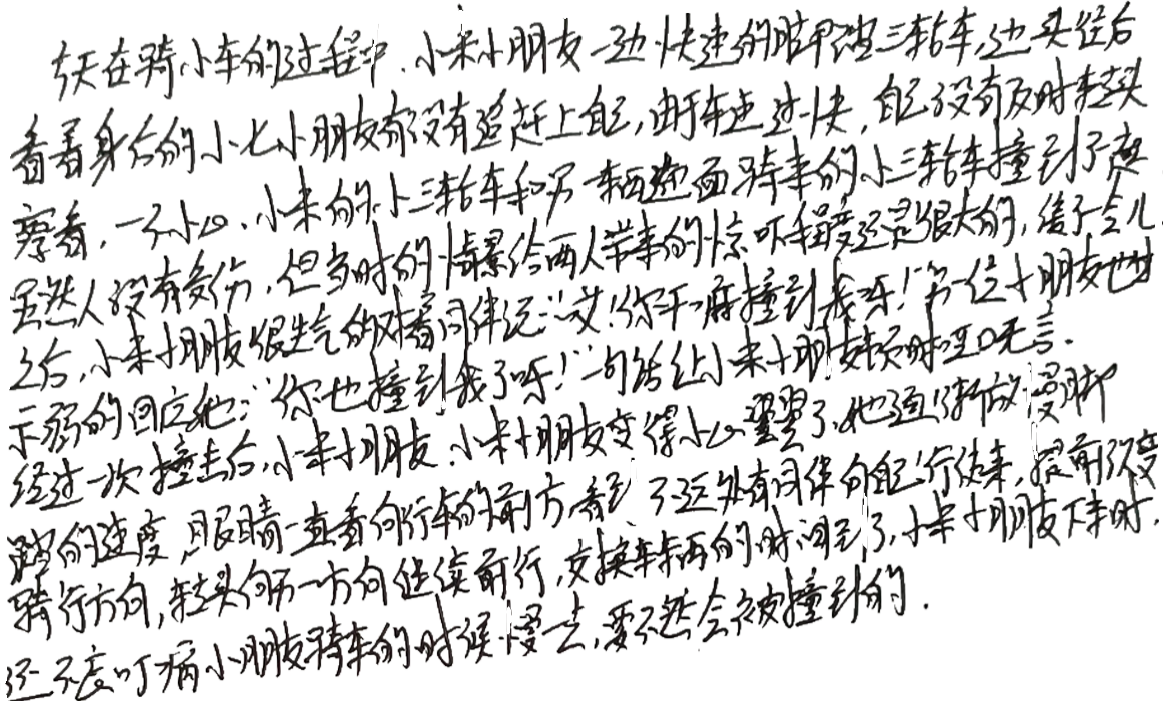 今天在骑小车的过程中，小米小朋友一边快速的脚踏三轮车，边头往后
看着身后的小七小朋友有没有追赶上自己，由于车速过快，自己没有及时转头
察看，一不小心，小米的小三轮车和另一辆迎面骑来的小三轮车撞到了
虽然人没有受伤，但当时的情景给两人带来的惊吓程度还是很大的，缓了会儿
之后，小米小朋友很生气的对着同伴说：“哎！你干嘛撞到我呀！”另一位小朋友也甘
示弱的回应她：“你也撞到我了呀！”一句话让小米小朋友顿时哑口无言．
经过一次撞击后，小米小朋友．小米小朋友变得小心翼翼了，她逐渐放慢脚
踏的速度，眼睛一直看向行车的前方，看到了远处有同伴向自己行使来，提前改变
骑行方向，转头向另一方向继续前行，交换车辆的时间到了，小米小朋友下车时．
还不忘叮嘱小朋友骑车的时候慢一点，要不然会被撞到的．